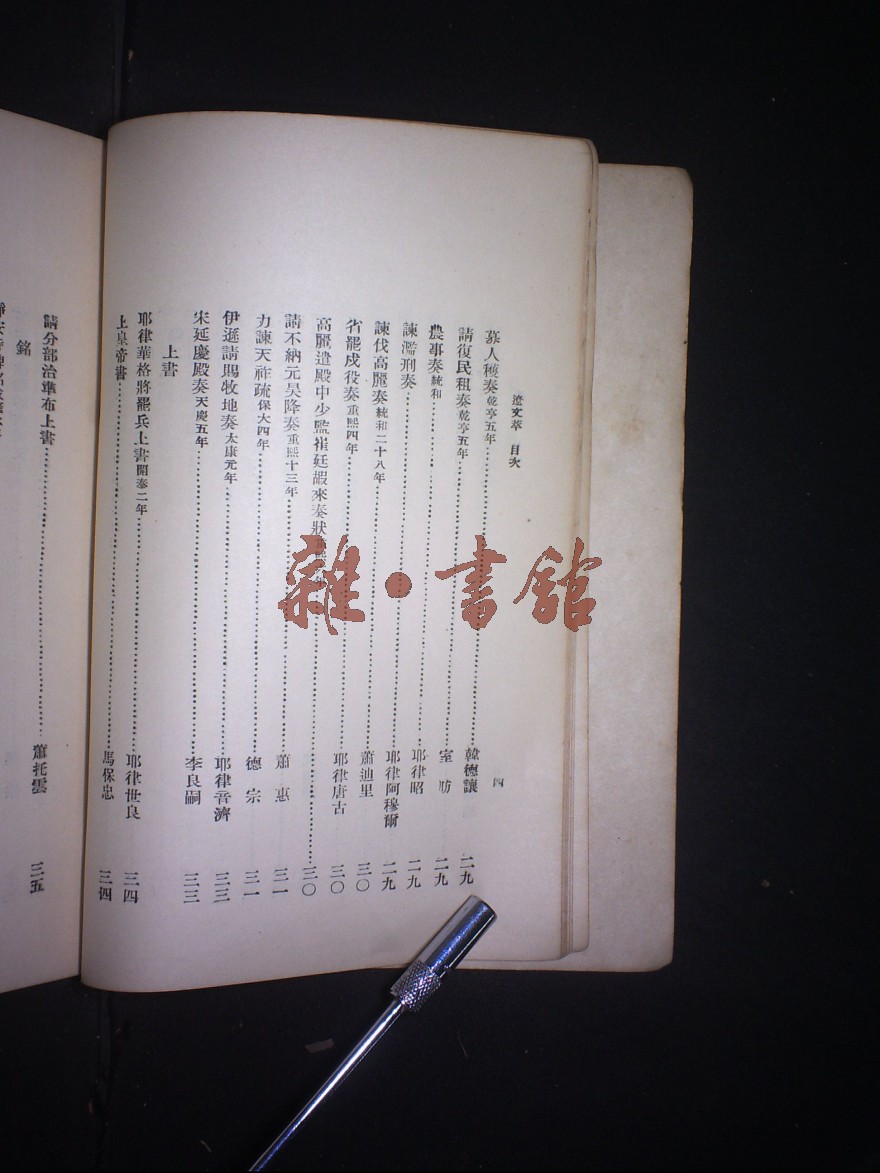 遼文萃 目次 四
募人穫奏乾亨五年………韓德讓 二九
請復民租奏乾亨五年………室昉 二九
農事奏統和………耶律昭 二九
諫濫刑奏………耶律阿穆爾 二九
諫伐高麗奏統和二十八年………蕭迪里 三〇
省罷戍役奏重熙四年………耶律唐古 三〇
高麗遣殿中少監崔延嘏來奏狀………三〇
請不納元昊降奏重熙十三年………蕭惠 三一
力諫天祚疏保大四年………德宗 三一
伊遜請賜牧地奏太康元年………耶律音濟 三三
宋延慶殿奏天慶五年………李良嗣 三三
上書
耶律華格將罷兵上書開泰二年………耶律世良 三四
上皇帝書………馬保忠 三四
請分部治準布上書………蕭托雲 三五
銘
雜·書館